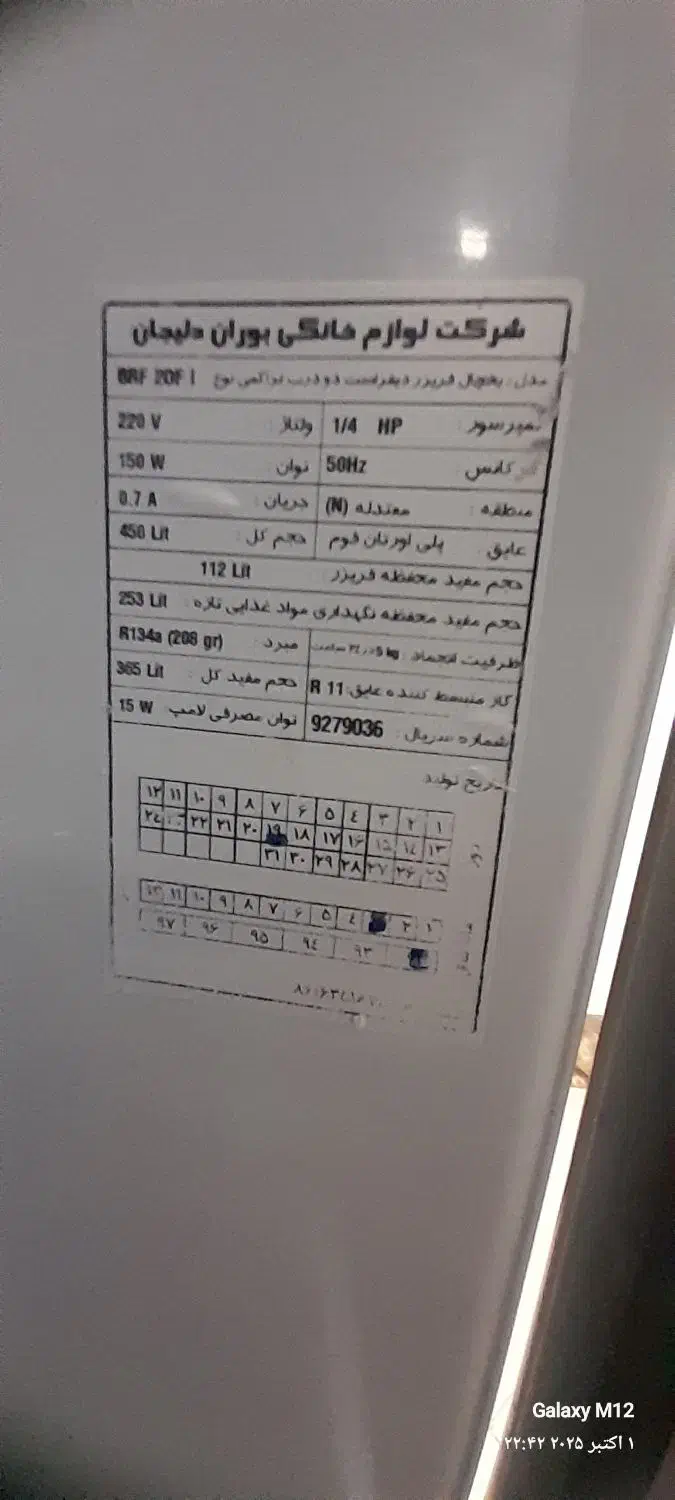 شرکت لوازم خانگی بوران دلیجان
مدل: یخچال فریزر دیفراست دو درب تراکمی نوع BRF 2DF I
1/4 HP ولتاژ: 220 V
50Hz توان: 150 W
منطقه: معتدله (N) جریان: 0.7 A
عایق: پلی اورتان فوم حجم کل: 450 Lit
حجم مفید محفظه فریزر: 112 Lit
حجم مفید محفظه نگهداری مواد غذایی تازه: 253 Lit
ظرفیت انجماد: ساعت مبرد: R134a (208 gr)
گاز منبسط کننده عایق: R 11 حجم مفید کل: 365 Lit
شماره سریال: 9279036 توان مصرفی لامپ 15 W
تاریخ تولید
۱ ۲ ۳ ۴ ۵ ۶ ۷ ۸ ۹ ۱۰ ۱۱ ۱۲
۱۳ ۱۴ ۱۵ ۱۶ ۱۷ ۱۸ ۱۹ ۲۰ ۲۱ ۲۲ ۲۴
۲۵ ۲۶ ۲۷ ۲۸ ۲۹ ۳۰ ۳۱
۱ ۲ ۴ ۵ ۶ ۷ ۸ ۹ ۱۰ ۱۱ ۱۲
۹۳ ۹۴ ۹۵ ۹۶ ۹۷
Galaxy M12
۱ اکتبر ۲۰۲۵ ۲۲:۴۲